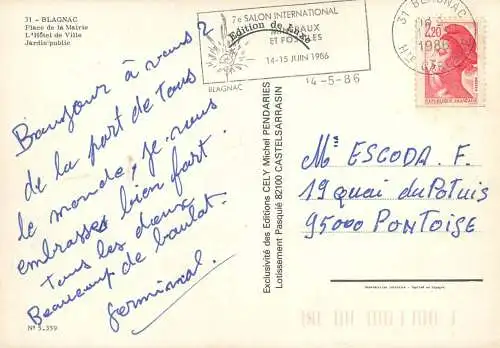 31 - BLAGNAC
Place de la Mairie
L'Hôtel de Ville
Jardin public
7e SALON INTERNATIONAL
MINÉRAUX
ET FOSSILES
14-15 JUIN 1986
Edition de Luxe
BLAGNAC
14-5-86
31 BLAGNAC
1986
2,20
REPUBLIQUE FRANÇAISE
Bonjour à vous 2
de la part de Tous
le monde, je vous
embrasse bien fort
Tous les deux
Beaucoup de boulot.
Germinal.
Exclusivité des Editions CELY Michel PENDARIES
Lotissement Pasquié 82100 CASTELSARRASIN
Mme ESCODA. F.
19 quai du Potuis
95000 PONTOISE
N° 5.359